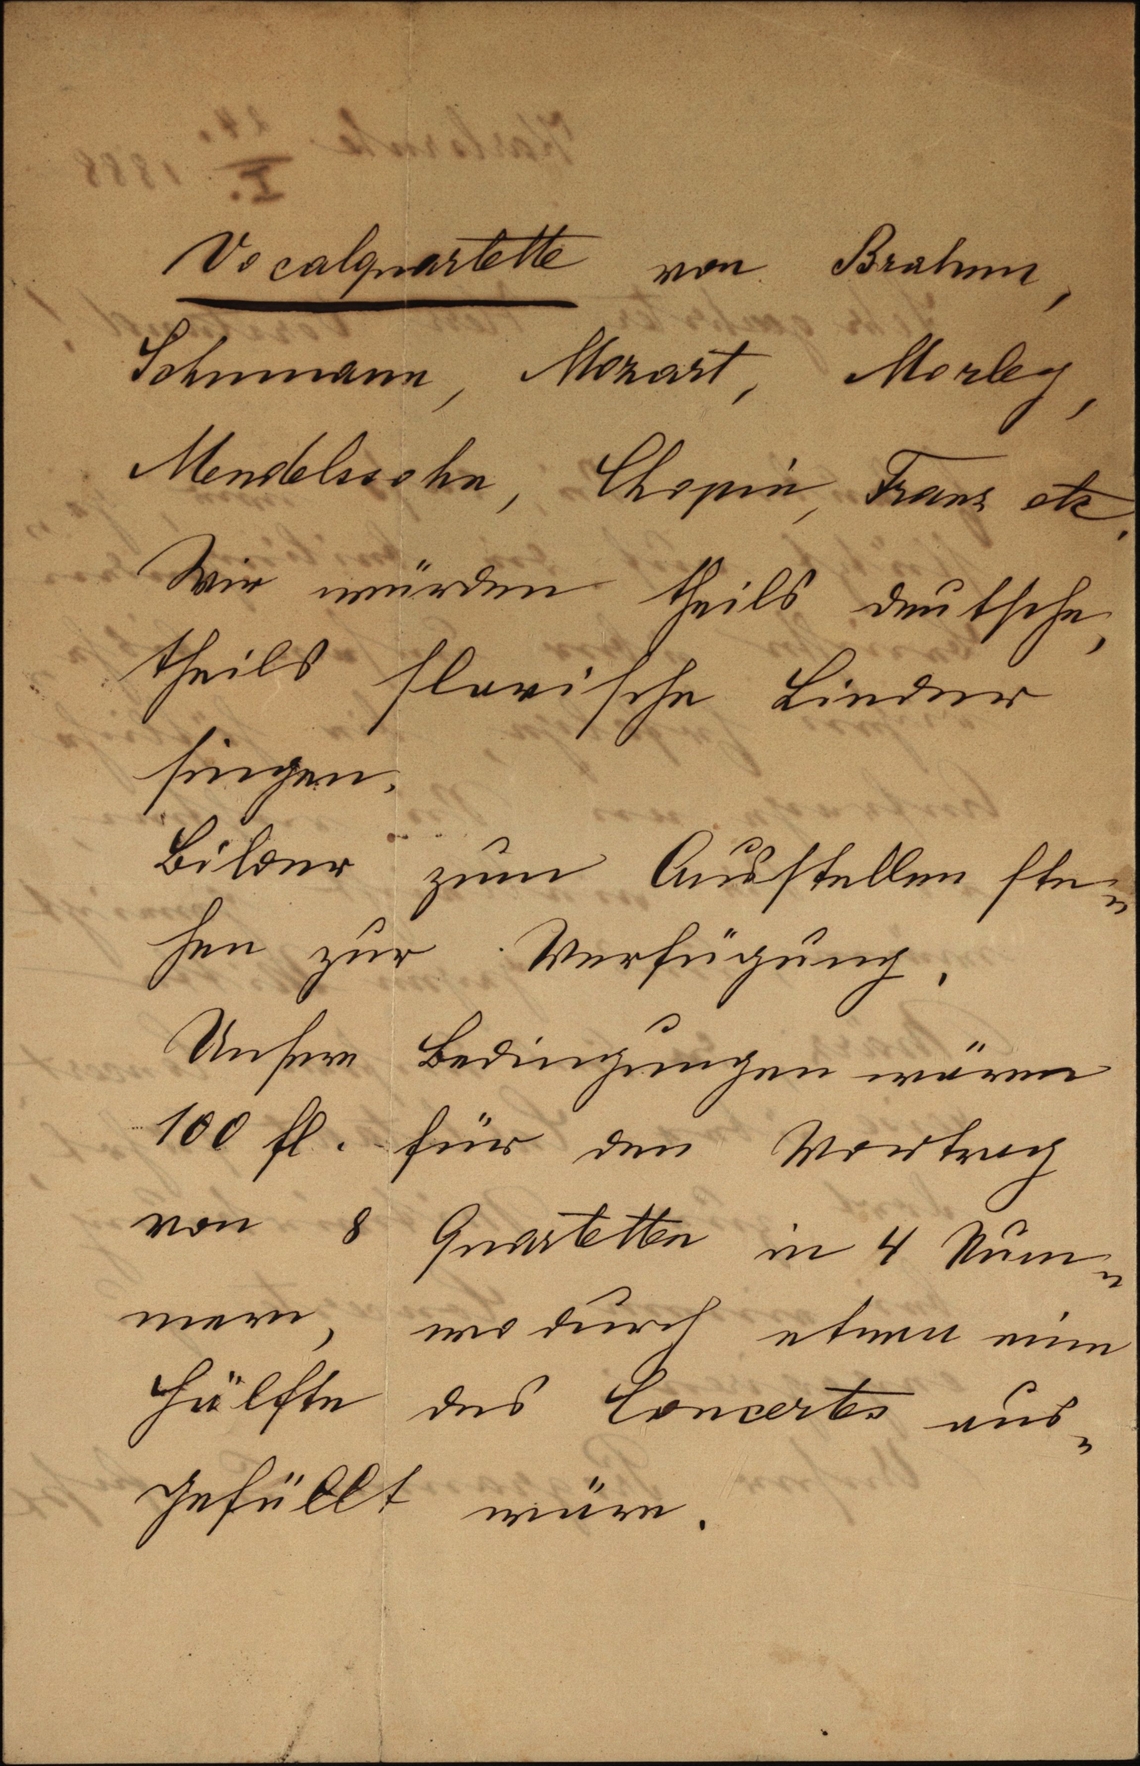 Vocalquartette von Brahms,
Schumann, Mozart, Morley,
Mendelssohn, Chopin, Franz etc.
Wir würden theils deutsche,
theils slavische Lieder
singen.
Bilder zum Ausstellen ste=
hen zur Verfügung.
Unsere Bedingungen wären
100 fl. für den Vortrag
von 8 Quartetten in 4 Num=
mern, wodurch etwa eine
Hälfte des Concertes aus=
gefüllt wäre.